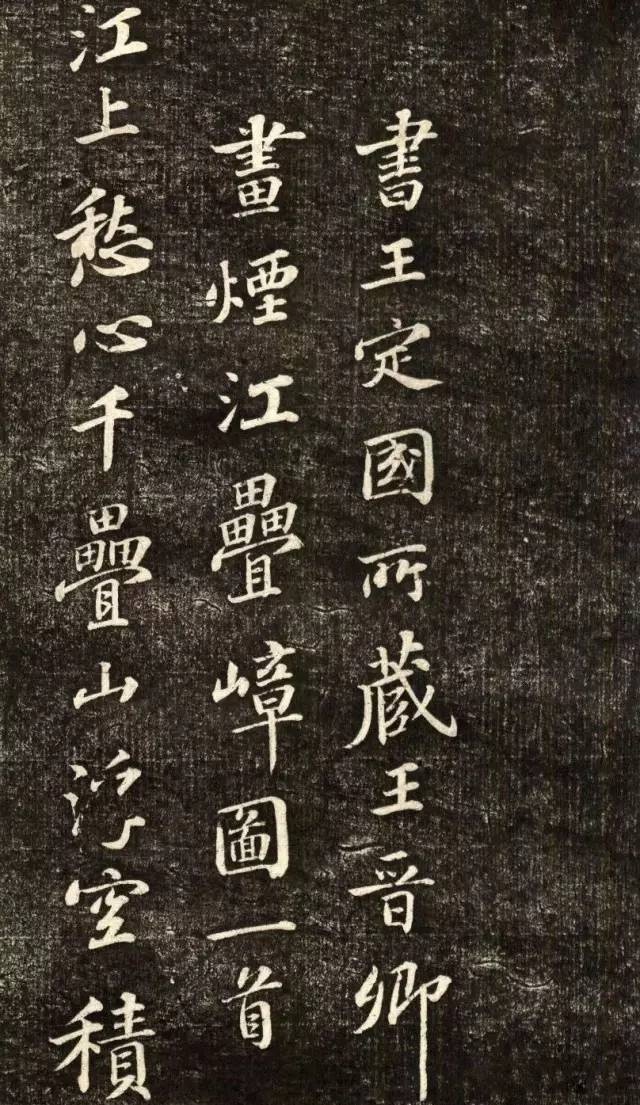 書王定國所蔵王晉卿
畫煙江疊嶂圖一首
江上愁心千疊山浮空積